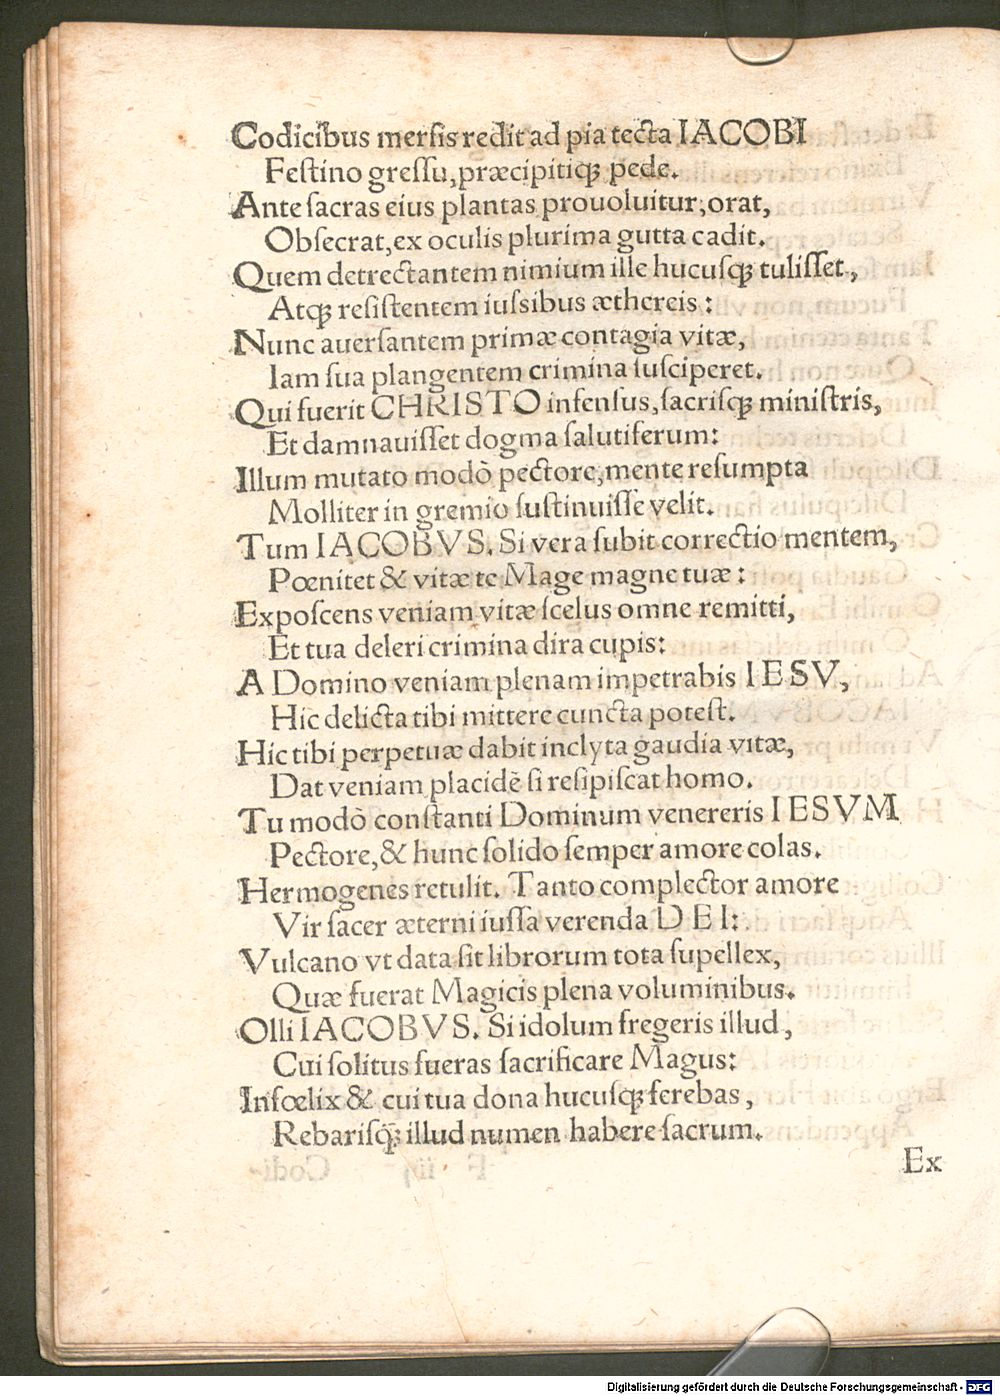 Codicibus mersis redit ad pia tecta IACOBI
Festino gressu, præcipitiq; pede.
Ante sacras eius plantas prouoluitur, orat,
Obsecrat, ex oculis plurima gutta cadit.
Quem detrectantem nimium ille hucusq; tulisset,
Atq; resistentem iussibus æthereis:
Nunc auersantem primæ contagia vitæ,
Iam sua plangentem crimina susciperet.
Qui fuerit CHRISTO infensus, sacrisq; ministris,
Et damnauisset dogma salutiferum:
Illum mutato modò pectore, mente resumpta
Molliter in gremio sustinuisse velit.
Tum IACOBVS. Si vera subit correctio mentem,
Pœnitet & vitæ te Mage magne tuæ:
Exposcens veniam vitæ scelus omne remitti,
Et tua deleri crimina dira cupis:
A Domino veniam plenam impetrabis IESV,
Hic delicta tibi mittere cuncta potest.
Hic tibi perpetuæ dabit inclyta gaudia vitæ,
Dat veniam placidè si resipiscat homo.
Tu modò constanti Dominum venereris IESVM
Pectore, & hunc solido semper amore colas.
Hermogenes retulit. Tanto complector amore
Vir sacer æterni iussa verenda DEI:
Vulcano vt data sit librorum tota supellex,
Quæ fuerat Magicis plena voluminibus.
Olli IACOBVS. Si idolum fregeris illud,
Cui solitus fueras sacrificare Magus:
Infœlix & cui tua dona hucusq; ferebas,
Rebarisq; illud numen habere sacrum.
Ex
Digitalisierung gefördert durch die Deutsche Forschungsgemeinschaft - DFG